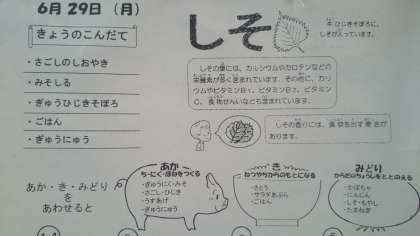 6月 29日 (月)
きょうのこんだて
・さごしのしおやき
・みそしる
・ぎゅうひじきそぼろ
・ごはん
・ぎゅうにゅう
しそ
ひじきそぼろに、
しそが入っています。
しその葉には、カルシウムやカロテンなどの
栄養素が多く含まれています。その他に、カリ
ウムやビタミンB1、ビタミンB2、ビタミン
C、食物せんいなども含まれています。
しその香りには、食欲を出す働きが
あります。
あか・き・みどり
を
あわせると
あか
ち・にく・ほねをつくる
・ぎゅうにく・みそ
・さごし・ひじき
・うすあげ
・ぎゅうにゅう
き
ねつやちからのもとになる
・さとう
・サラダあぶら
・ごはん
みどり
からだのちょうしをととのえる
・かぼちゃ
・にんじん
・しそ・もやし
・たまねぎ